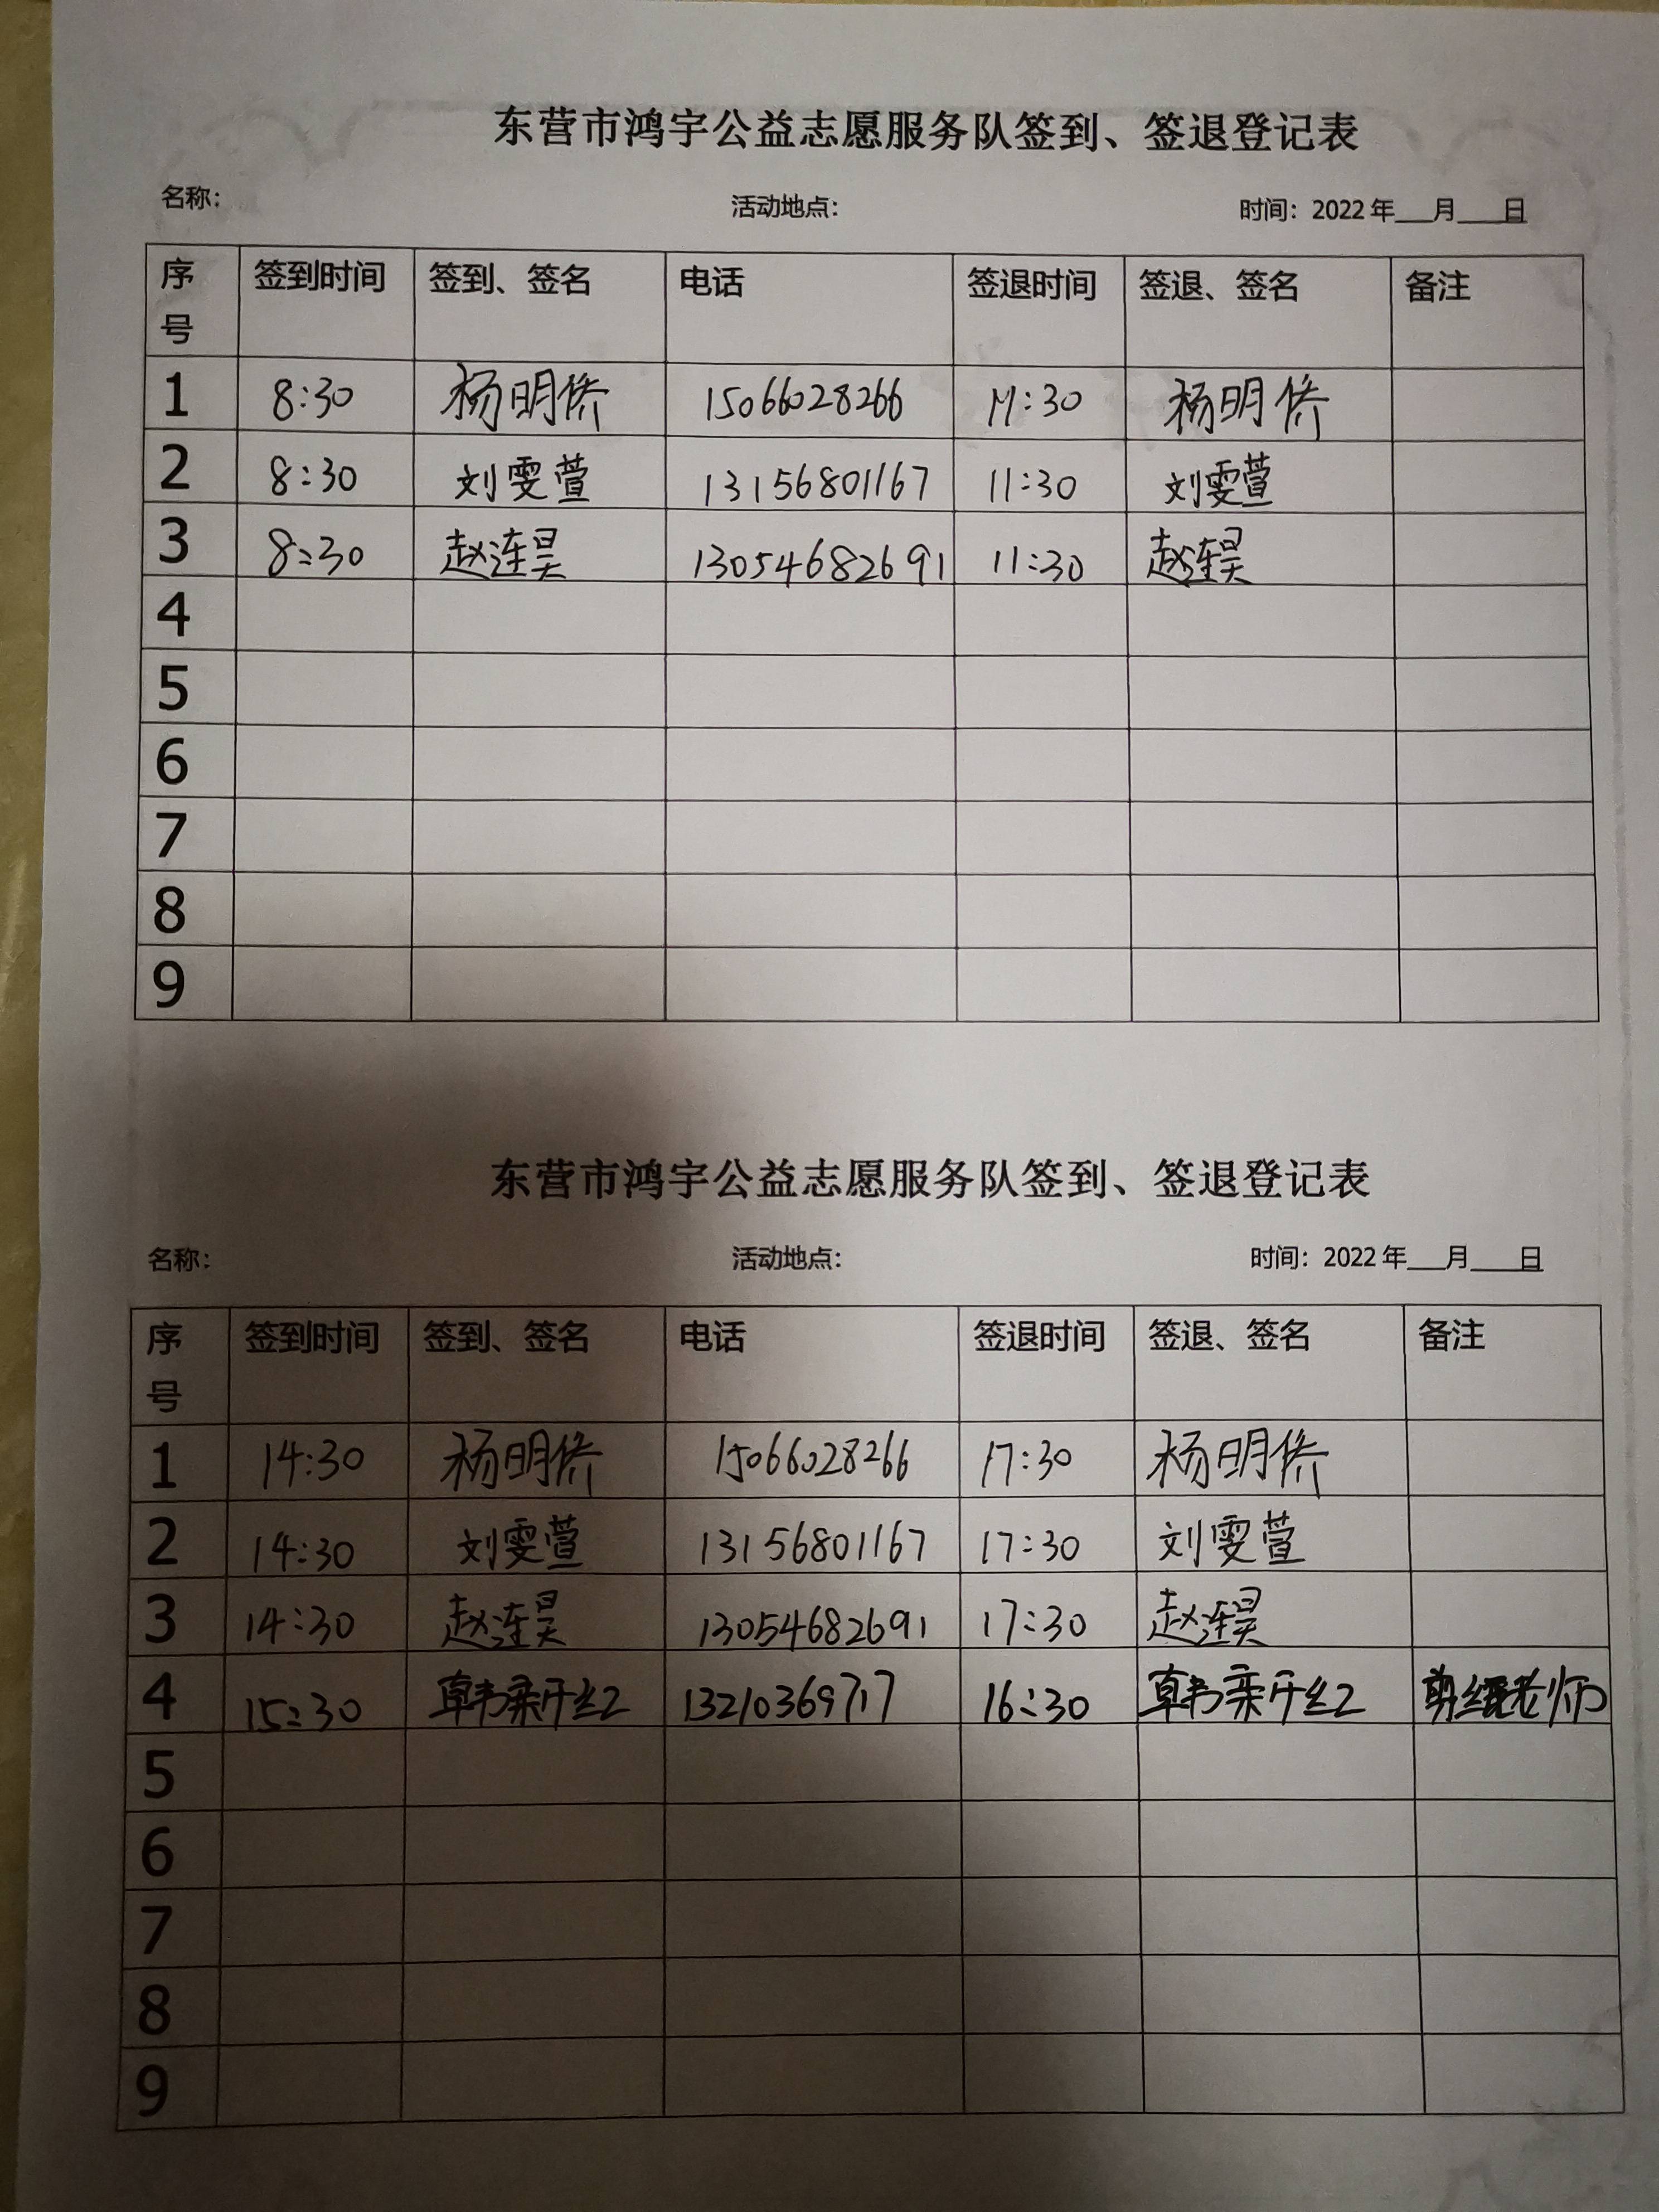 东营市鸿宇公益志愿服务队签到、签退登记表
名称： 活动地点： 时间：2022年___月___日
序号 签到时间 签到、签名 电话 签退时间 签退、签名 备注
1 8:30 杨明侨 15066028266 11:30 杨明侨
2 8:30 刘雯萱 13156801167 11:30 刘雯萱
3 8:30 赵连昊 13054682691 11:30 赵连昊
4
5
6
7
8
9
东营市鸿宇公益志愿服务队签到、签退登记表
名称： 活动地点： 时间：2022年___月___日
序号 签到时间 签到、签名 电话 签退时间 签退、签名 备注
1 14:30 杨明侨 15066028266 17:30 杨明侨
2 14:30 刘雯萱 13156801167 17:30 刘雯萱
3 14:30 赵连昊 13054682691 17:30 赵连昊
4 15:30 13210369717 16:30 老师
5
6
7
8
9